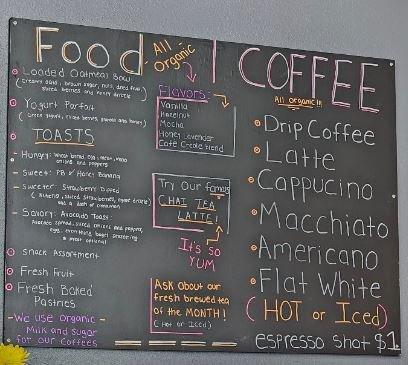 Food
- All Organic
Loaded Oatmeal Bowl
( Creamy oats, brown sugar, nuts, dried fruit,
sliced berries and honey drizzle
Yogurt Parfait
( Greek yogurt, mixed berries, granola and honey )
TOASTS
- Hungry: Wheat bread,
onions and peppers
- Sweet: PB & Honey Banana
- Sweeter: Strawberry Dipped
( sliced strawberries, agave drizzle
and a dash of cinnamon
- Savory: Avocado Toast:
Avocado spread, sliced onions and peppers,
egg, everything bagel seasoning
meat optional
Snack Assortment
Fresh Fruit
Fresh Baked
Pastries
- We use organic -
Milk and Sugar
for our Coffees
Flavors:
Vanilla
Hazelnut
Mocha
Honey Lavender
Café Creole Blend
Try Our famous
CHAI TEA
LATTE!
It's so
YUM
Ask about our
fresh brewed tea
of the MONTH!
( Hot or Iced )
COFFEE
All organic!!!
Drip Coffee
Latte
Cappucino
Macchiato
Americano
Flat White
( HOT or Iced )
espresso shot $1